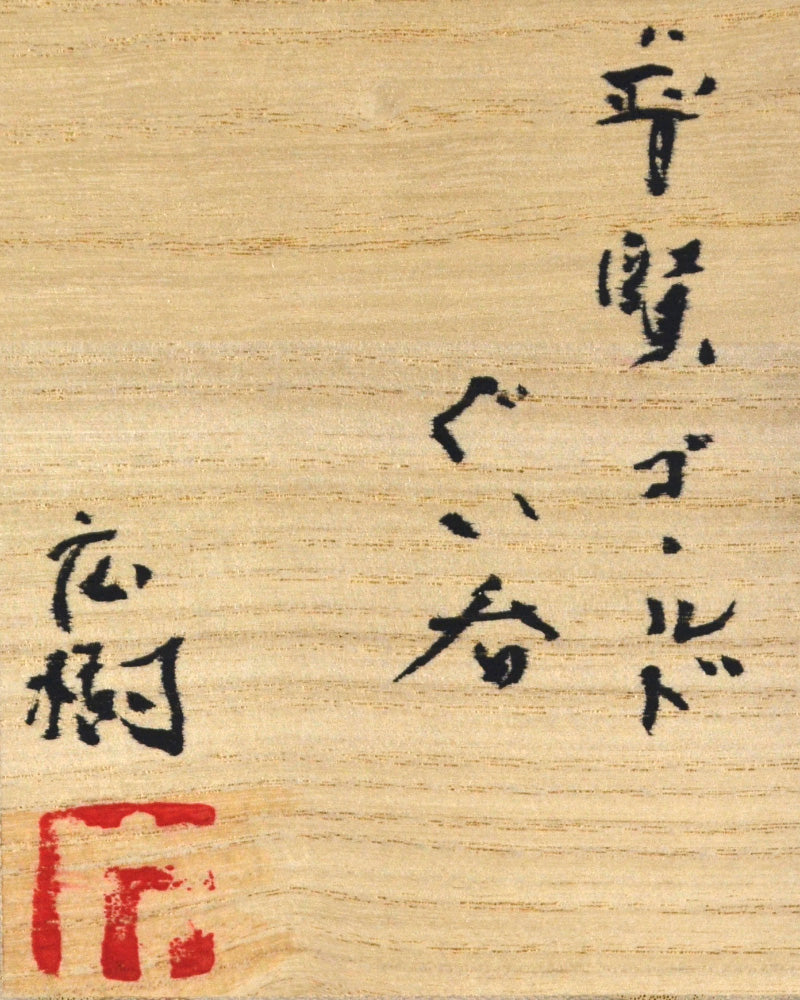 普賢ゴールド
ぐい呑
広樹